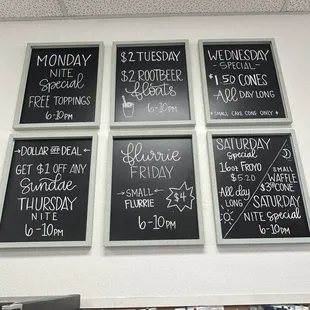 MONDAY
NITE
Special
FREE TOPPINGS
6-10PM
$2 TUESDAY
$2 ROOTBEER
floats
6-10PM
WEDNESDAY
SPECIAL
$1.50 CONES
All DAY LONG
*SMALL CAKE CONE ONLY*
DOLLAR OFF DEAL
GET $1 OFF ANY
Sundae
THURSDAY
NITE
6-10PM
flurrie
FRIDAY
SMALL
FLURRIE
$4
6-10PM
SATURDAY
Special
16oz FROYO
$5.20
All day
LONG
SMALL
WAFFLE
CONE
SATURDAY
NITE Special
6-10PM